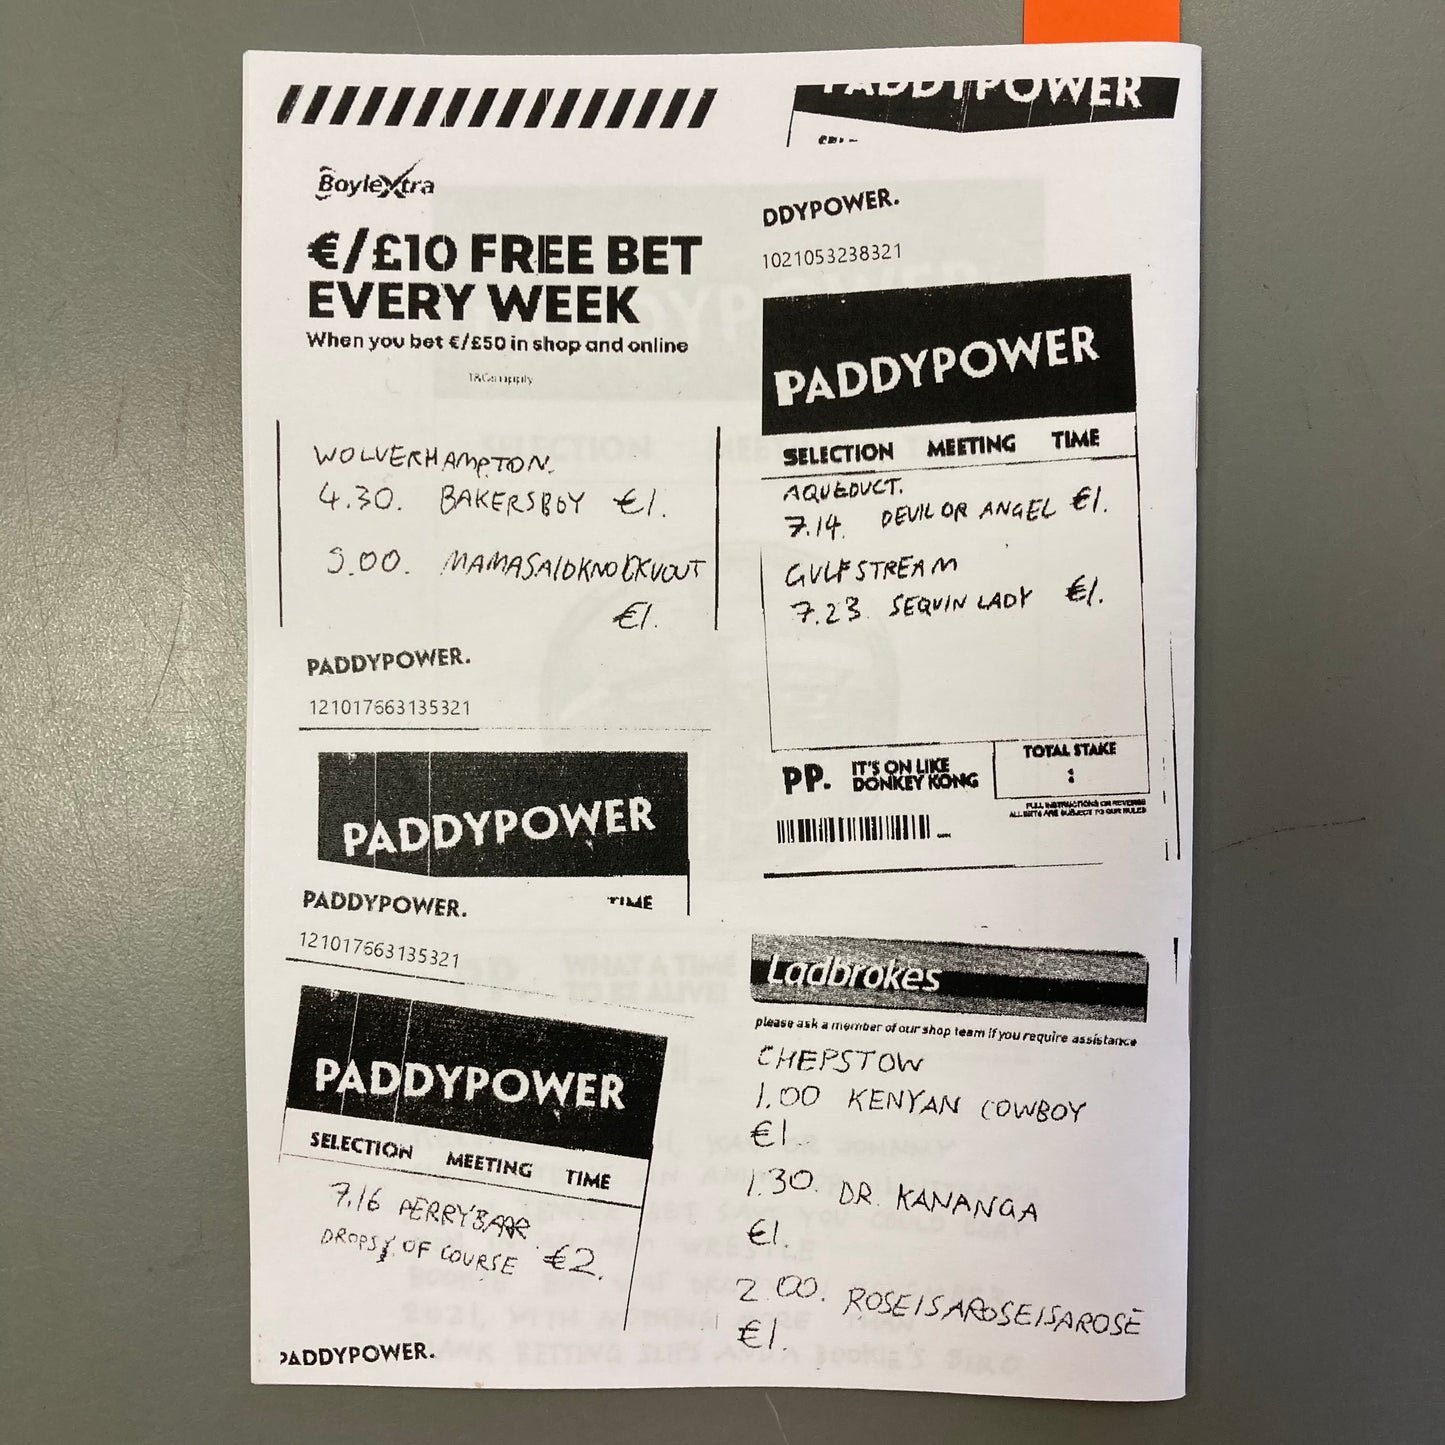 PADDYPOWER
BoyleXtra
€/£10 FREE BET
EVERY WEEK
When you bet €/£50 in shop and online
T&Cs apply
WOLVERHAMPTON.
4.30. BAKERSBOY €1.
5.00. MAMASAIDKNOCKVOUT
€1.
PADDYPOWER.
121017663135321
PADDYPOWER
TIME
PADDYPOWER.
121017663135321
PADDYPOWER
SELECTION MEETING TIME
7.16 PERRYBARR
DROPSY OF COURSE €2.
PADDYPOWER.
DDYPOWER.
1021053238321
PADDYPOWER
SELECTION MEETING TIME
AQUEDUCT.
7.14. DEVIL OR ANGEL €1.
GULFSTREAM
7.23 SEQUIN LADY €1.
PP. IT'S ON LIKE
DONKEY KONG
TOTAL STAKE
:
FULL INSTRUCTIONS ON REVERSE
ALL BETS ARE SUBJECT TO OUR RULES
Ladbrokes
please ask a member of our shop team if you require assistance
CHEPSTOW
1.00 KENYAN COWBOY
€1.
1.30. DR. KANANGA
€1.
2.00. ROSEISAROSEISAROSE
€1.